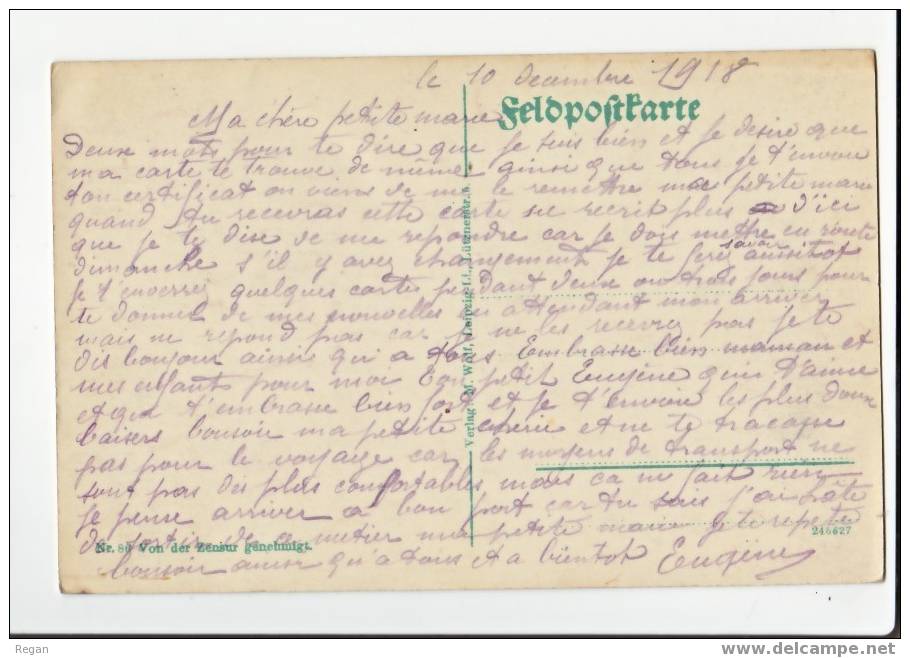 le 10 decembre 1918
Feldpostkarte
Ma chère petite marie
Deux mots pour te dire que je suis bien et je desire que
ma carte te trouve de même ainsi que tous je t'envoie
ton certificat on viens de me le remettre ma petite marie
quand tu recevras cette carte ne recrit plus d'ici
que je te dise de me repondre car je dois mettre en route
dimanche s'il y avez changement je te ferai savoir aussitot
je t'enverrai quelques cartes pendant deux ou trois jours pour
te donner de mes nouvelles en attendant mon arriver
mais ne repond pas car je ne les recevrez pas je te
dis bonjour ainsi qu'a tous Embrasse bien maman et
mes enfants pour moi ton petit Eugène qui t'aime
et que t'embrasse bien fort et je t'envoie les plus doux
baisers bonsoir ma petite cherie et ne te tracasse
pas pour le voyage car les moyens de transport ne
sont pas des plus confortables mais ca ne fait rien
je pense arriver a bon port car tu sais j'ai hâte
de sortir de ce metier ma petite marie je te repete
bonsoir ainsi qu'a tous et a bientot Eugène
Verlag M. Wolf, Leipzig-Li., Lütznerstr.
Nr. 80 Von der Zensur genehmigt.
246627
Regan
www.delcampe.net